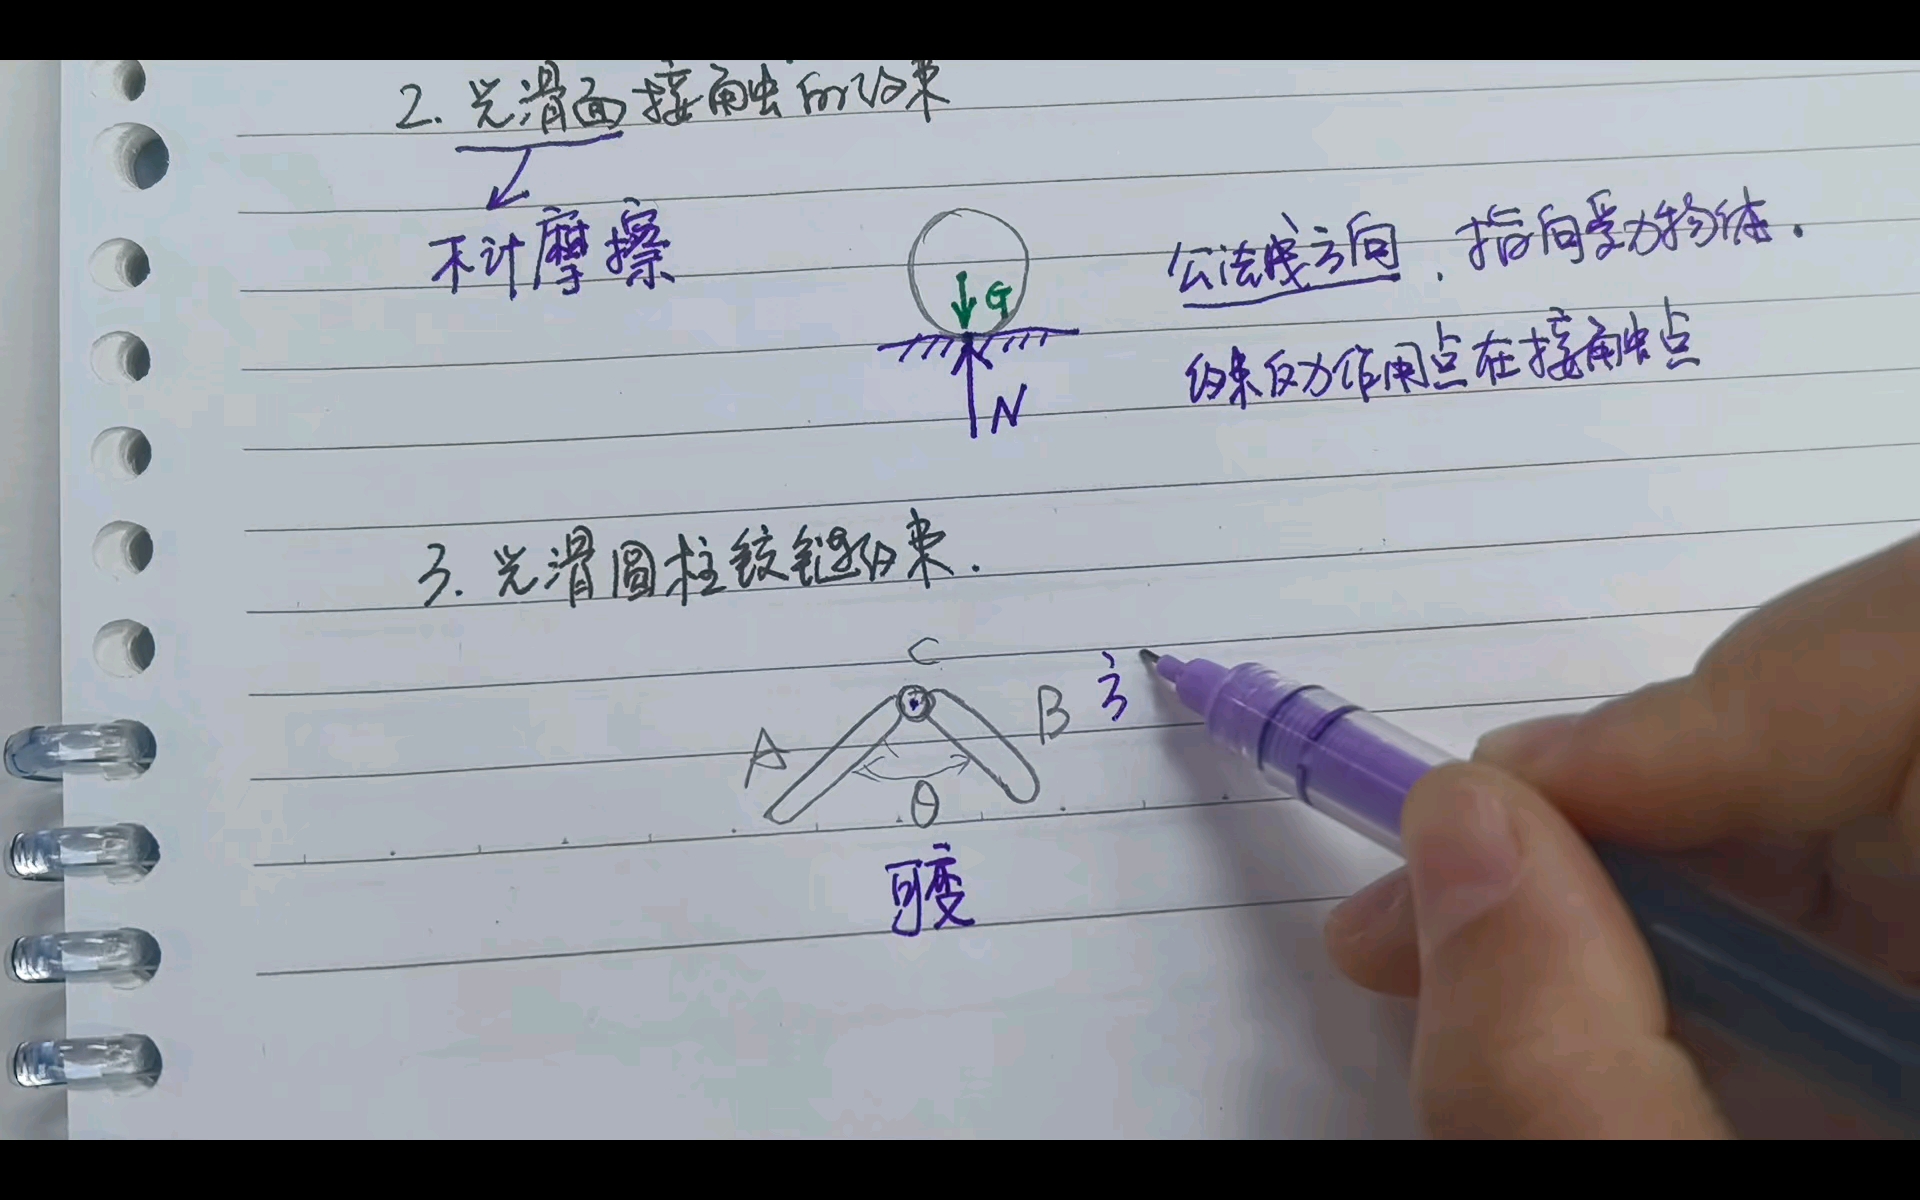 2. 光滑面接触的约束
不计摩擦
公法线方向，指向受力物体.
约束反力作用点在接触点
G
N
3. 光滑圆柱铰链约束.
C
A
B
方
θ
可变